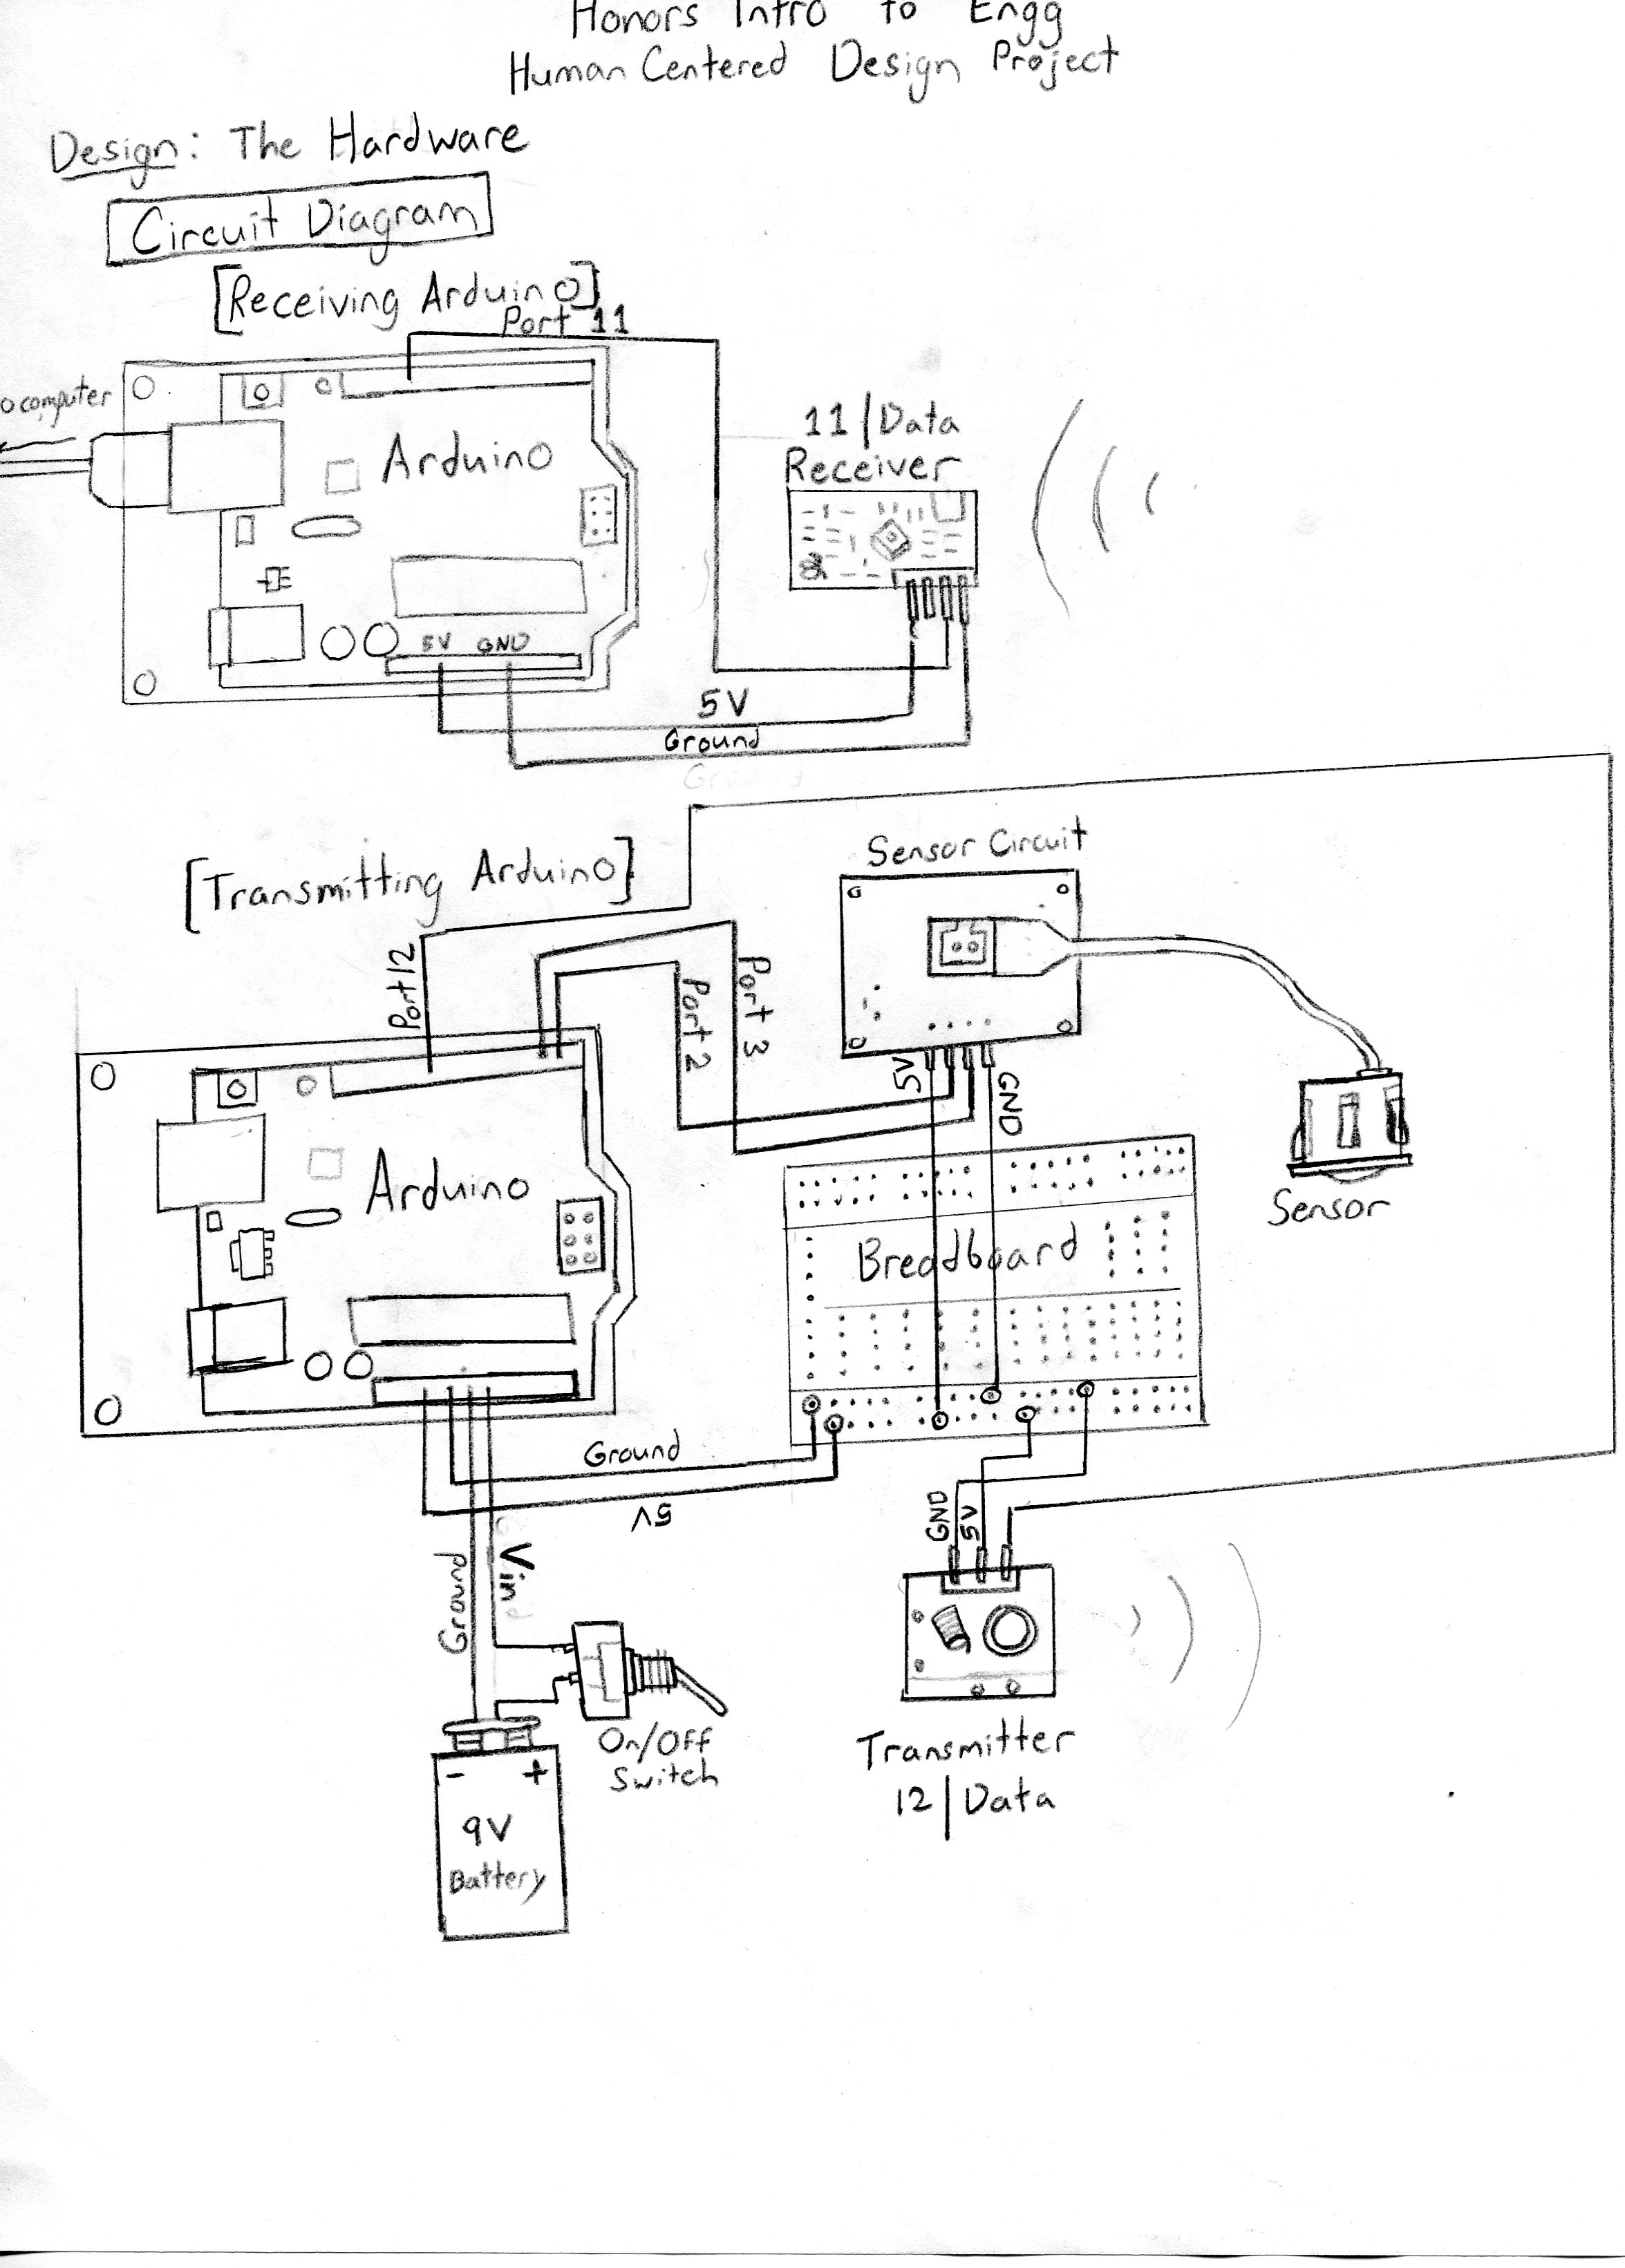 Honors Intro to Engg
Human Centered Design Project
Design: The Hardware
Circuit Diagram
[Receiving Arduino]
Port 11
o computer
Arduino
11/Data
Receiver
5V GND
5V
Ground
Ground
[Transmitting Arduino]
Sensor Circuit
Port 12
Port 2
Port 3
5V
GND
Arduino
Sensor
Breadboard
Ground
5V
GND
5V
Ground
Vin
On/Off
Switch
- +
9V
Battery
Transmitter
12/Data